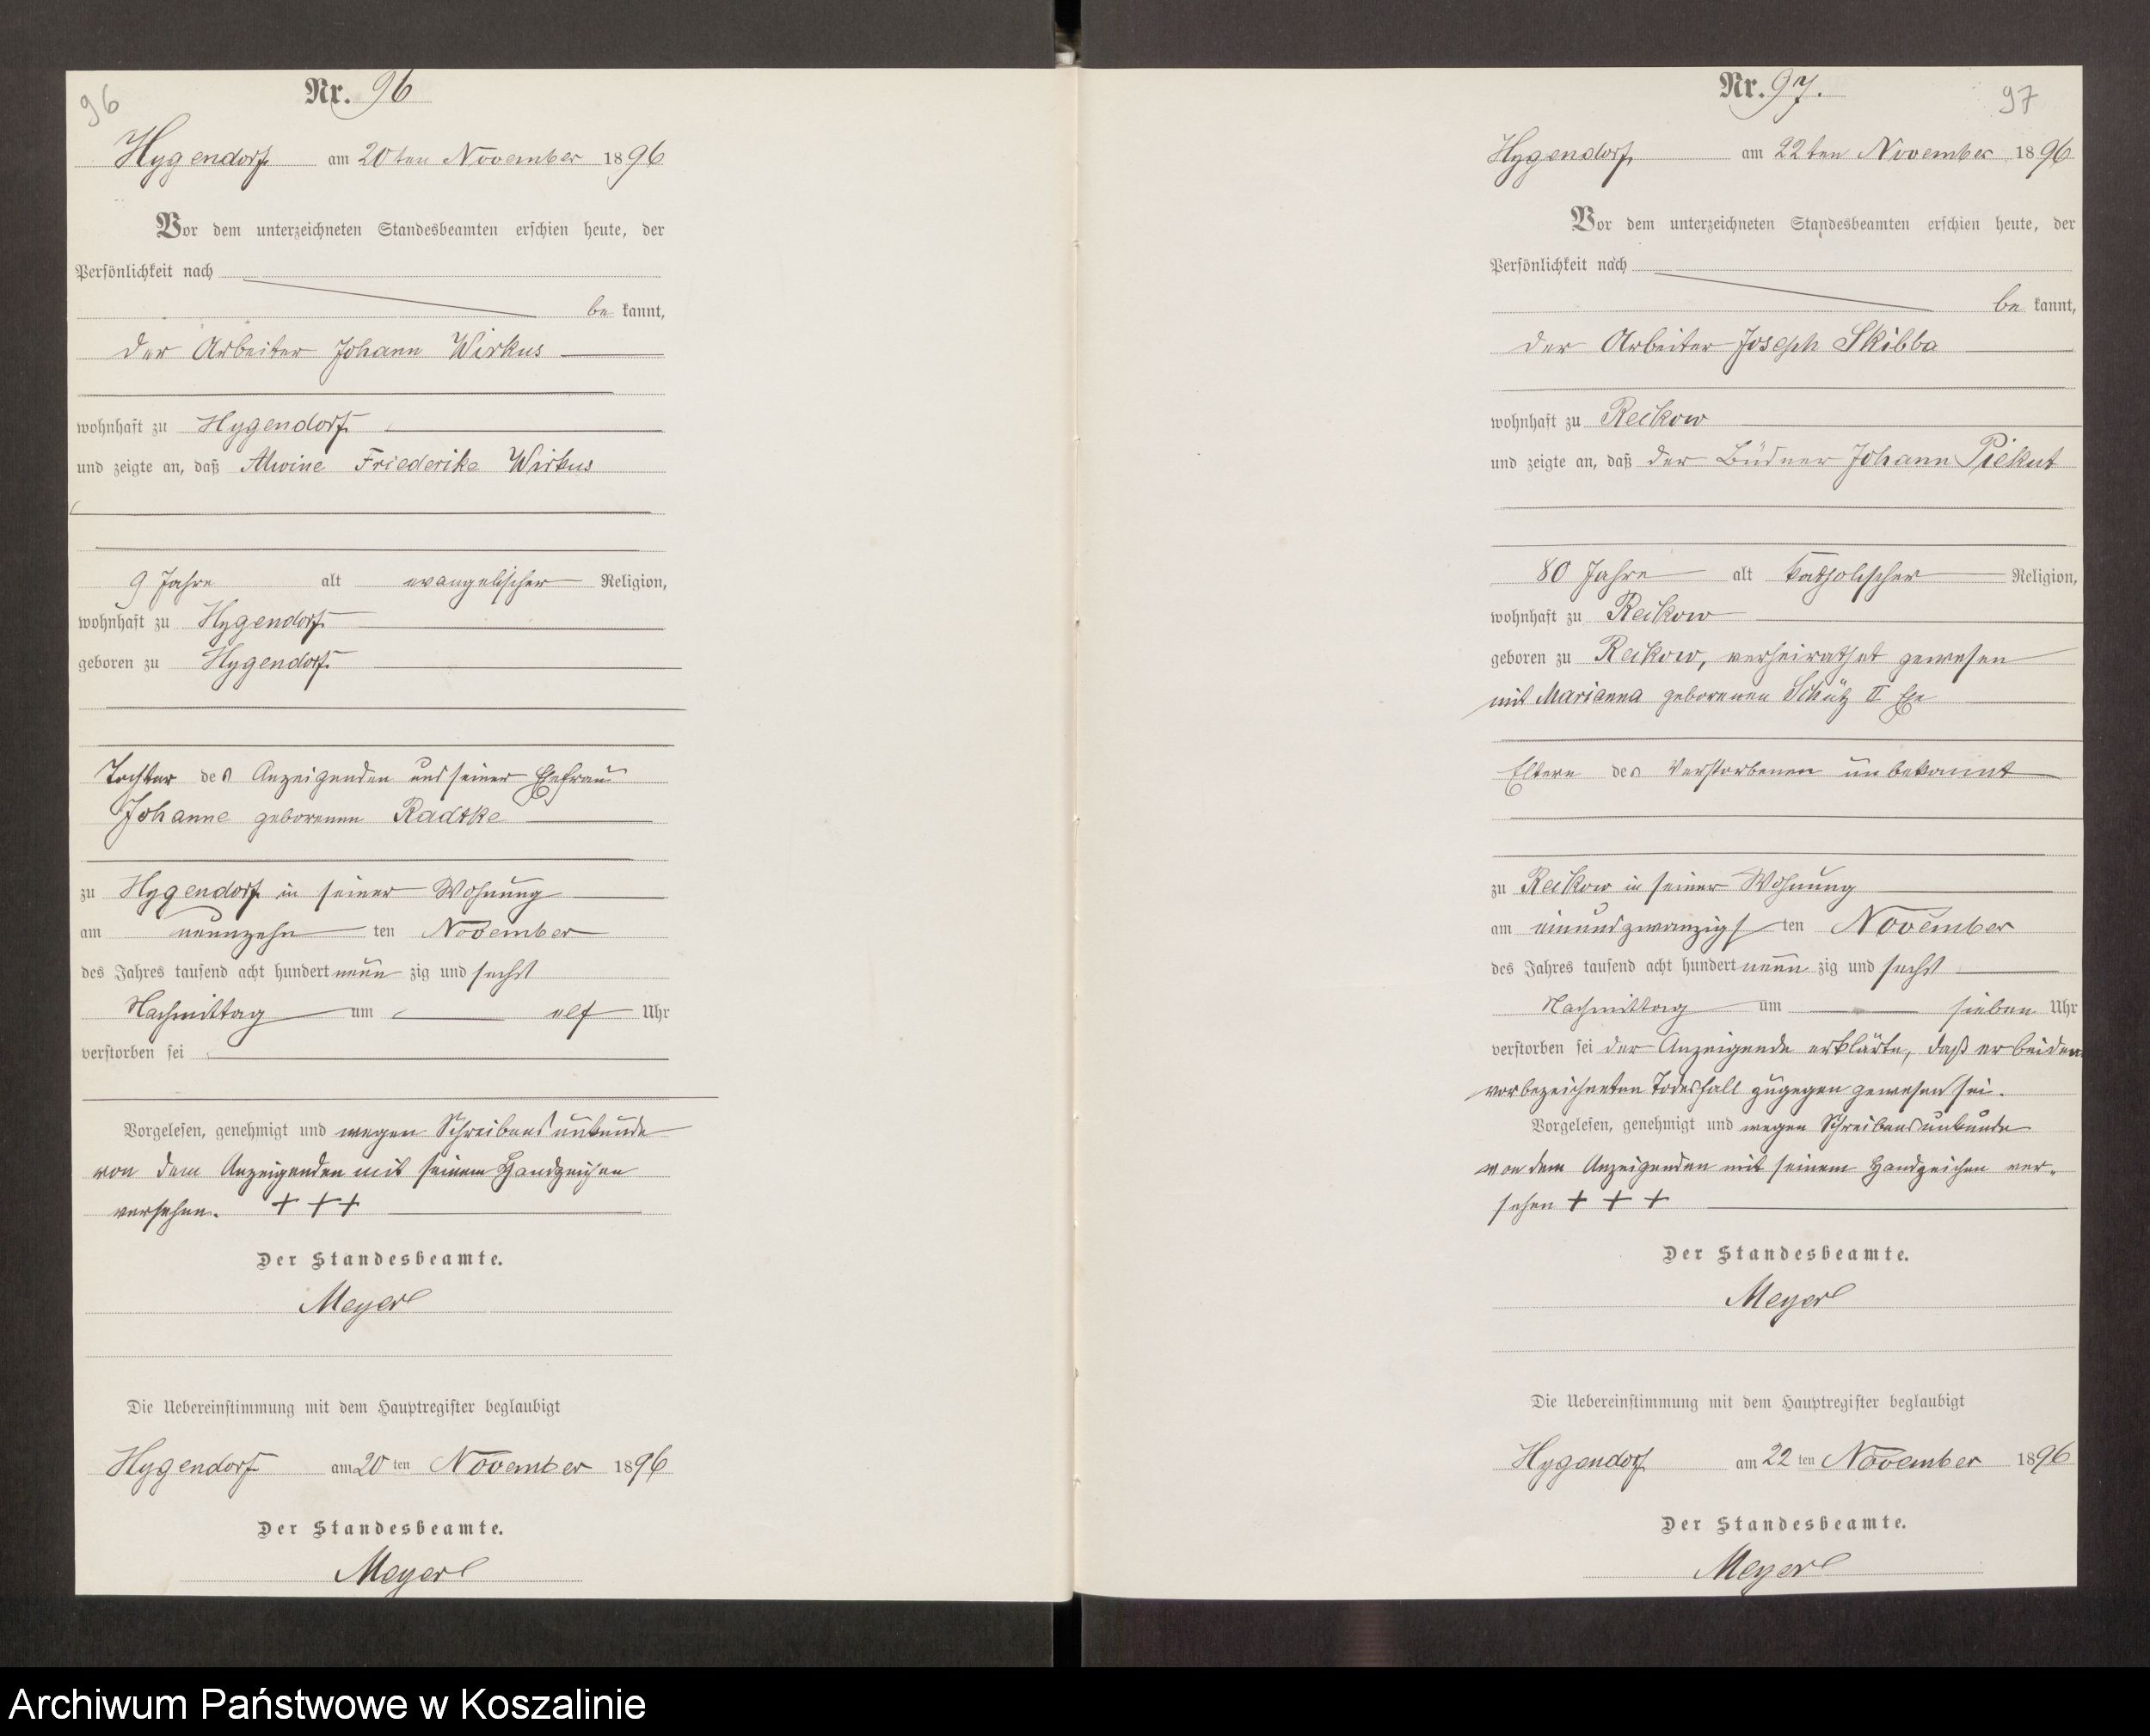 96
Nr. 96
Hygendorf am 20ten November 1896
Vor dem unterzeichneten Standesbeamten erschien heute, der
Persönlichkeit nach
be kannt,
der Arbeiter Johann Wirkus
wohnhaft zu Hygendorf
und zeigte an, daß Alwine Friederike Wirkus
9 Jahre alt evangelischer Religion,
wohnhaft zu Hygendorf
geboren zu Hygendorf
Tochter des Anzeigenden und seiner Ehefrau
Johanne geborenen Radtke
zu Hygendorf in seiner Wohnung
am neunzehn ten November
des Jahres tausend acht hundert neun zig und sechs
Nachmittag um elf Uhr
verstorben sei
Vorgelesen, genehmigt und wegen Schreibensunkunde
von dem Anzeigenden mit seinem Handzeichen
versehen. + + +
Der Standesbeamte.
Meyer
Die Uebereinstimmung mit dem Hauptregister beglaubigt
Hygendorf am 20 ten November 1896
Der Standesbeamte.
Meyer
Nr. 97.
97
Hygendorf am 22ten November 1896
Vor dem unterzeichneten Standesbeamten erschien heute, der
Persönlichkeit nach
be kannt,
der Arbeiter Joseph Skibba
wohnhaft zu Reckow
und zeigte an, daß der Büdner Johann Piekut
80 Jahre alt katholischer Religion,
wohnhaft zu Reckow
geboren zu Reckow, verheirathet gewesen
mit Marianna geborenen Schütz II Ehe
Eltern des Verstorbenen unbekannt
zu Reckow in seiner Wohnung
am einundzwanzigs ten November
des Jahres tausend acht hundert neun zig und sechs
Nachmittag um sieben Uhr
verstorben sei der Anzeigende erklärte, daß er bei dem
vorbezeichneten Todesfall zugegen gewesen sei.
Vorgelesen, genehmigt und wegen Schreibensunkunde
von dem Anzeigenden mit seinem Handzeichen ver-
sehen + + +
Der Standesbeamte.
Meyer
Die Uebereinstimmung mit dem Hauptregister beglaubigt
Hygendorf am 22 ten November 1896
Der Standesbeamte.
Meyer
Archiwum Państwowe w Koszalinie